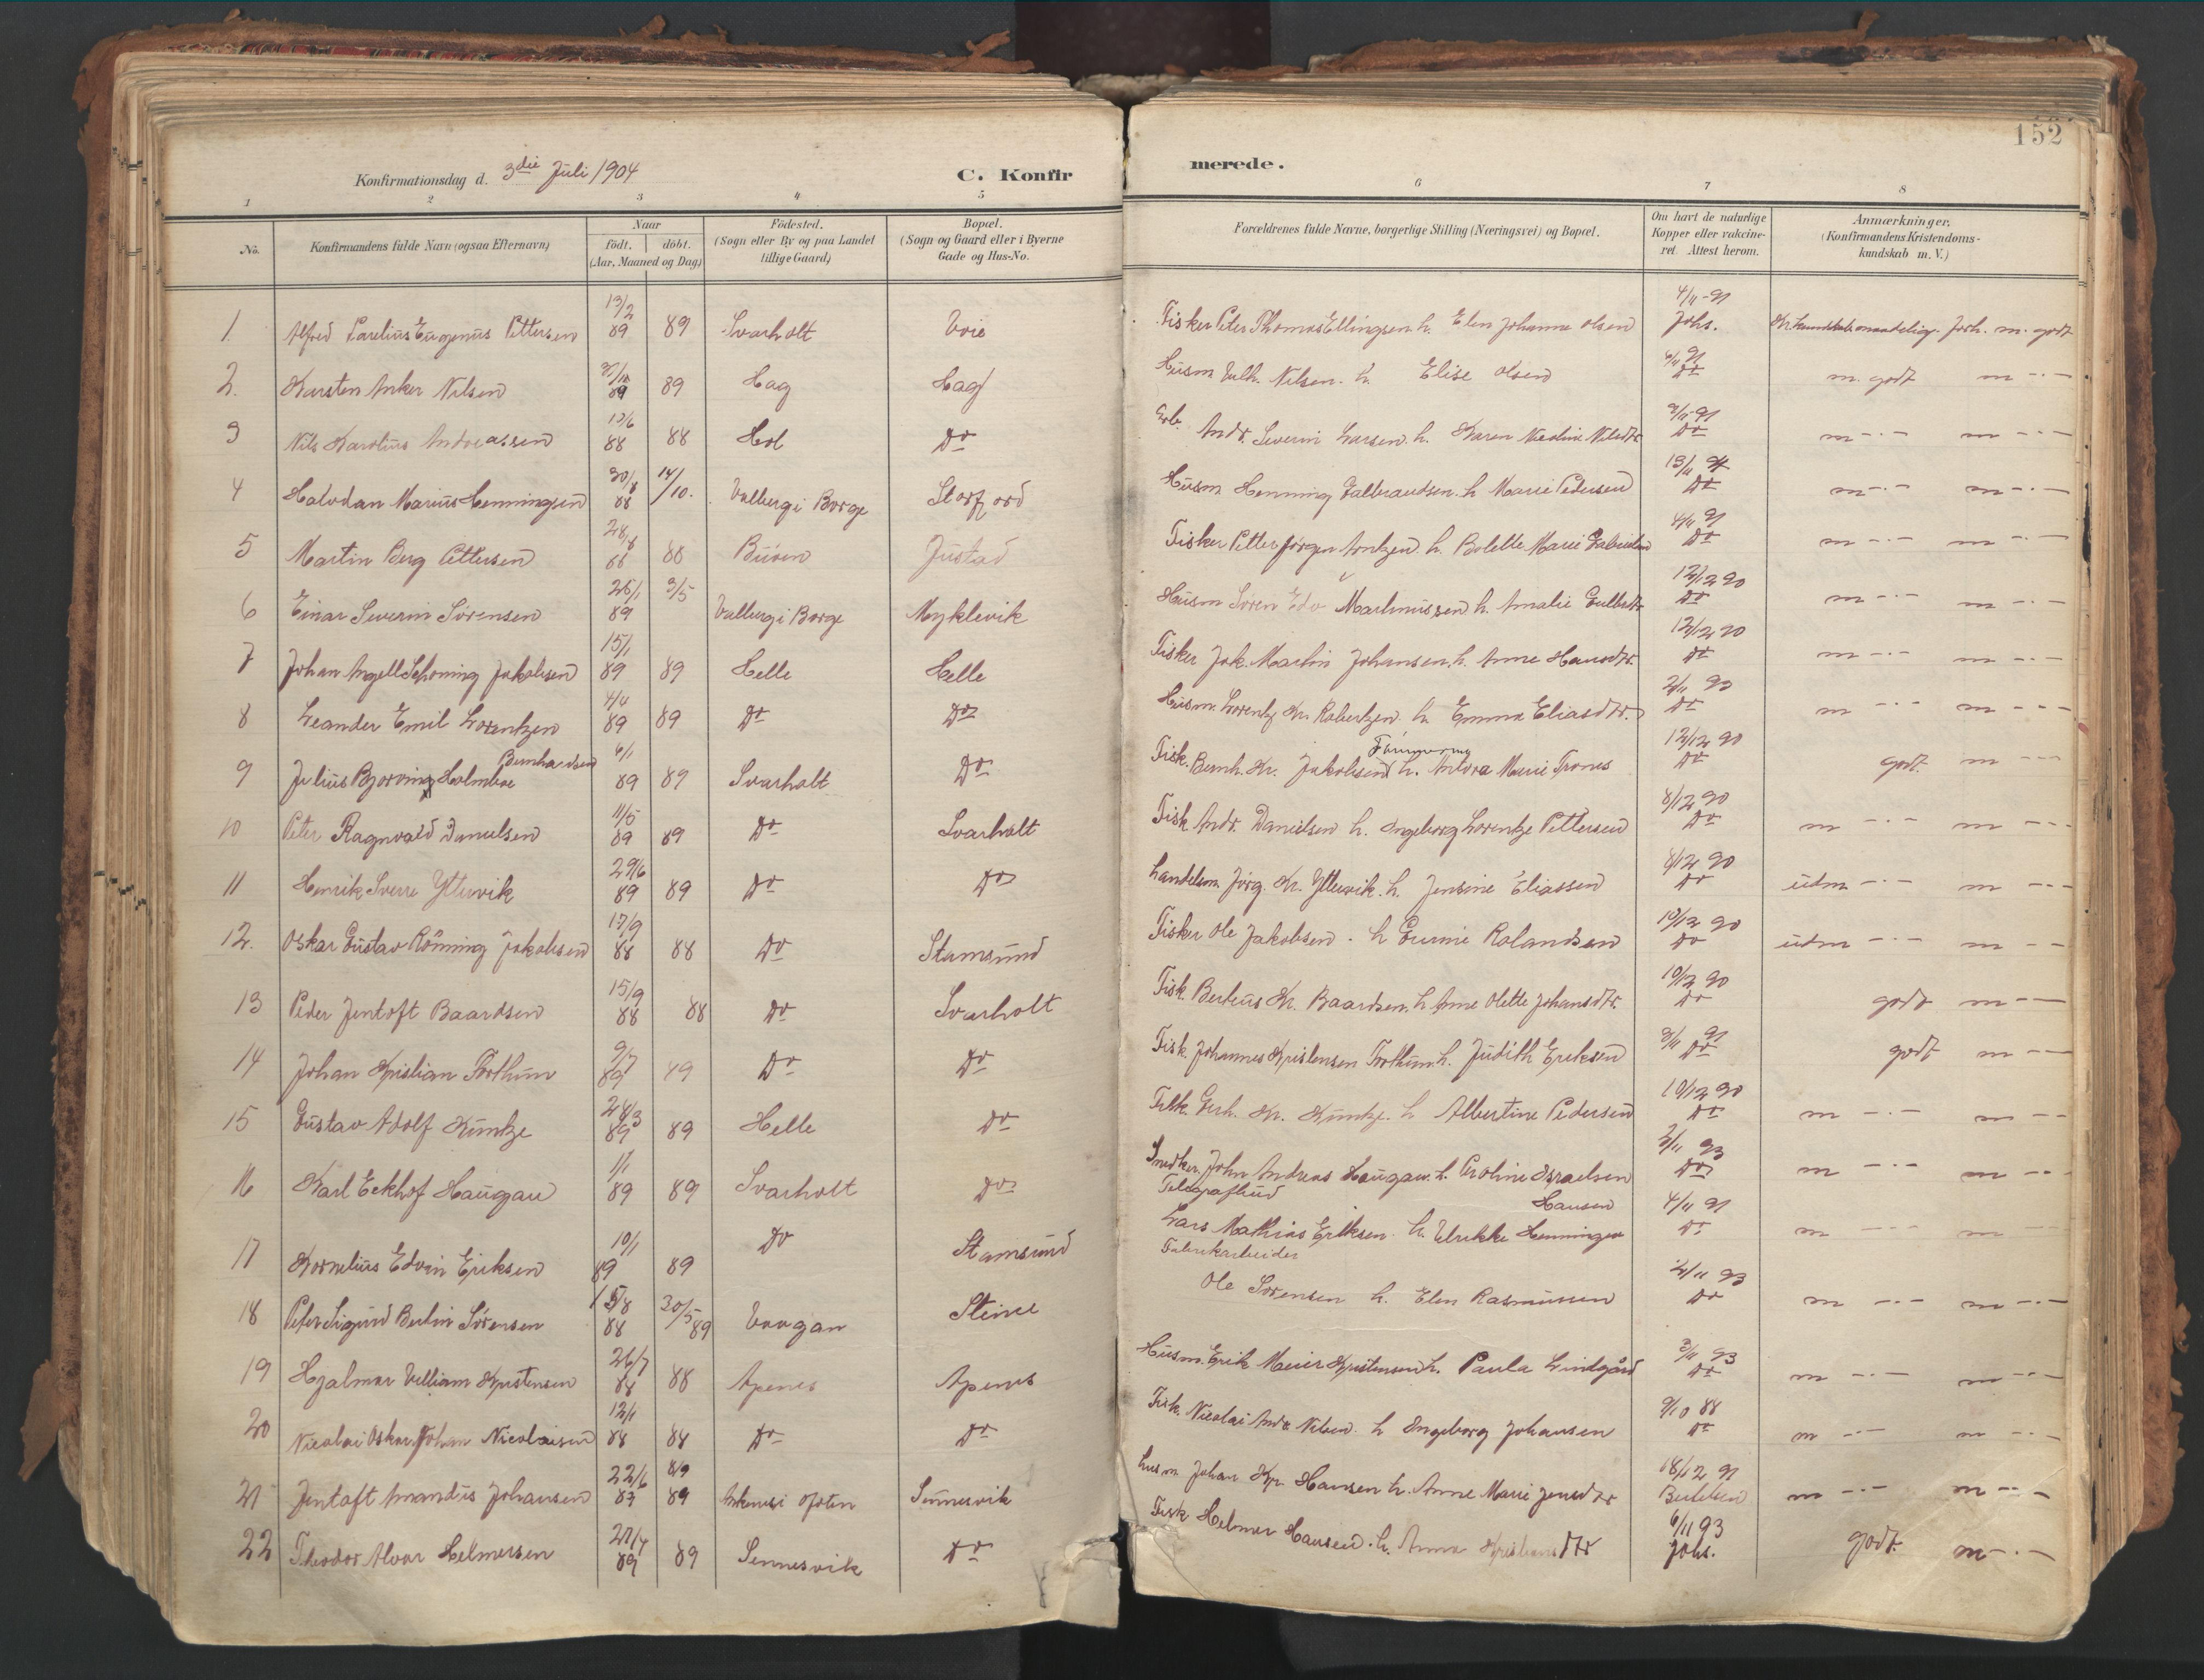 152
Konfirmationsdag d. 3die Juli 1904
C. Konfirmerede.
1 2 3 4 5 6 7 8
No.
Konfirmandens fulde Navn (ogsaa Efternavn)
Naar
født. | døbt.
(Aar, Maaned og Dag)
Fødested.
(Sogn eller By og paa Landet
tillige Gaard)
Bopæl.
(Sogn og Gaard eller i Byerne
Gade og Hus-No.
Forældrenes fulde Navne, borgerlige Stilling (Næringsvei) og Bopæl.
Om havt de naturlige
Kopper eller vakcine-
ret. Attest herom.
Anmærkninger.
(Konfirmandens Kristendoms-
kundskab m. V.)
1. Alfred Parelius Eugenius Pettersen 13/2 89 89 Svarholt Voie Fisker Peter Thomas Ellingsen h. Elen Johanne Olsen 4/11-91 Johs. m. godt
2. Karsten Anker Nilsen 89 89 Hag Hag Husm. Vilh. Nilsen h. Elise Olsen 4/11 91 Do m. godt m -.-
3 Nils Karolius Andreassen 13/6 88 88 Hol Do Andr. Severin Larsen h. Karen Nicoline Nilsdtr. 9/11-91 Do m -.- m -.-
4 Halvdan Marius Henningsen 30/8 88 14/10. Valberg i Borge Storfjord Husm Henning Gulbrandsen h Marie Pedersen 13/11 91 Do m -.- m -.-
5 Martin Berg Pettersen 28/8 88 88 Buren Justad Fisker Petter Jørgen Arntzen h. Bolette Marie 4/11 91 Do m -.- m -.-
6 Einar Severin Sørensen 25/1 89 3/5 Valberg i Borge Myklevik Husm Søren Edv Martinussen h. Amalie 12/12 90 Do m -.- m -.-
7 Johan Angell Schøning Jakobsen 15/1 89 89 Helle Helle Fisker Jak. Martin Johansen h. Anne Hansdtr. 12/12 90 Do m -.- m -.-
8 Leander Emil Lorentzen 4/4 89 89 Do Do Husm. Lorentz Kr. Robertzen h. Emma Eliasdtr. 2/11 90 Do m -.- m ---
9 Julius Bjorving Holmboe Bernhardsen 6/1 89 89 Svarholt Do Fisk. Bernh. Kr. Jakobsen h. Antora Marie Trones 12/12 90 Do godt. m ---
10 Peter Ragnvald Danielsen 11/5 89 89 Do Svarholt Fisk Andr. Danielsen h. Ingeborg Lorentze Pettersen 8/12 90 Do m -.- m ---
11 Henrik Sverre Yttervik 29/6 89 89 Do Do Handelsm. Jørg. Kr. Yttervik h. Jensine Eliassen 8/12 90 Do udm -.- m ---
12. Oskar Gustav Rønning Jakobsen 17/9 88 88 Do Stamsund Fisker Ole Jakobsen h Gurine Rolandsen 10/12 90 Do udm -.- m --
13 Peder Jentoft Baardsen 15/9 88 88 Do Svarholt Fisk. Berteus Kr. Baardsen h Anne Olette Johansdtr. 10/12 90 Do godt m --
14 Johan Kristian Forthun 9/7 89 49 Do Do Fisk. Johannes Kristensen Forthun h. Judith Eriksen 3/11 91 Do godt m --
15 Gustav Adolf Kuntze 28/3 89 89 Helle Do Gerh. Kr. Kuntze h Albertine Pedersen 10/12 90 Do m -.- m --
16 Karl Eckhof Haugan 1/1 89 89 Svarholt Do Snedker. John Andreas Haugan h. Peroline Israelsen 3/11 93 Do m -.- m --
17 Kornelius Edvin Eriksen 10/1 89 89 Do Stamsund Telegrafbud Lars Mathias Eriksen h. Ulrikke Henningen Hansen 4/11 91 Do m --- m --
18 Peter Sigurd Bertin Sørensen 15/8 88 30/5 89 Vaagan Steine Fabrikarbeider Ole Sørensen h. Elen Rasmussen 2/11 93 Do m -.- m -.-
19 Hjalmar Villiam Kristensen 26/7 88 88 Apenes Apenes Husm. Erik Meier Kristensen h. Paula Lindgård 3/11 93 Do m -.- m -.-
20 Nicolai Oskar Johan Nicolaisen 12/1 88 88 Do Do Fisk. Nicolai Andr. Nilsen h Ingeborg Johansen 9/10 88 Do m -.- m -.-
21 Jentoft Amandus Johansen 22/6 89 8/9 89 Ofoten Sennesvik Husm Johan Kr. Hansen h. Anne Marie Jensdtr 18/12 91 Bertelsen m -.- m --
22 Theodor Alvar Helmersen 27/4 89 89 Sennesvik Do Fisk Helmer Hansen h. Anna Kristiansdtr 6/11 93 Johs. godt. m -.-